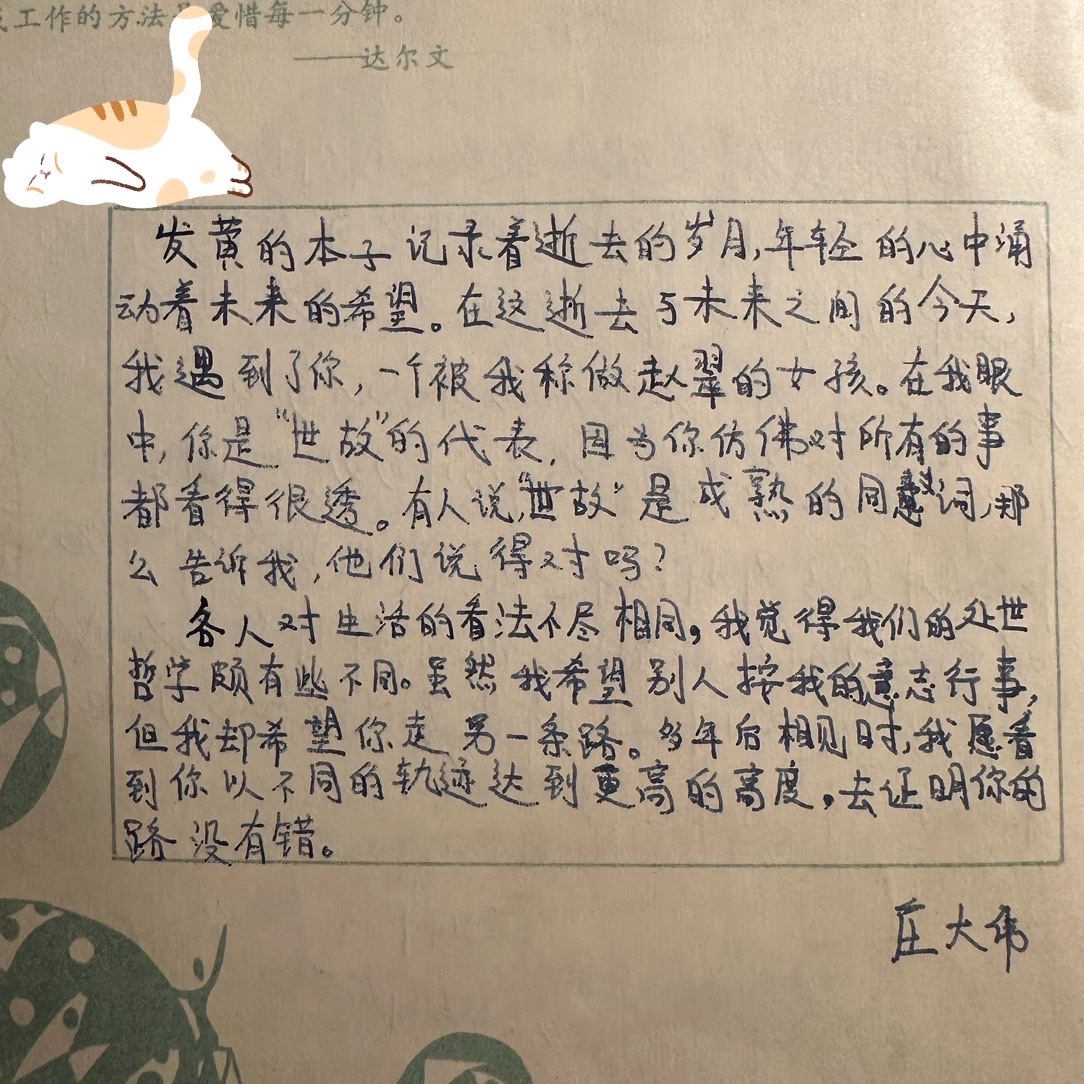 工作的方法是爱惜每一分钟。
——达尔文
发黄的本子记录着逝去的岁月,年轻的心中涌
动着未来的希望。在这逝去与未来之间的今天,
我遇到了你,一个被我称做赵翠的女孩。在我眼
中,你是“世故”的代表,因为你仿佛对所有的事
都看得很透。有人说,“世故”是成熟的同义词,那
么告诉我,他们说得对吗?
各人对生活的看法不尽相同,我觉得我们的处世
哲学颇有些不同。虽然我希望别人按我的意志行事,
但我却希望你走另一条路。多年后相见时,我愿看
到你以不同的轨迹达到更高的高度,去证明你的
路没有错。
庄大伟